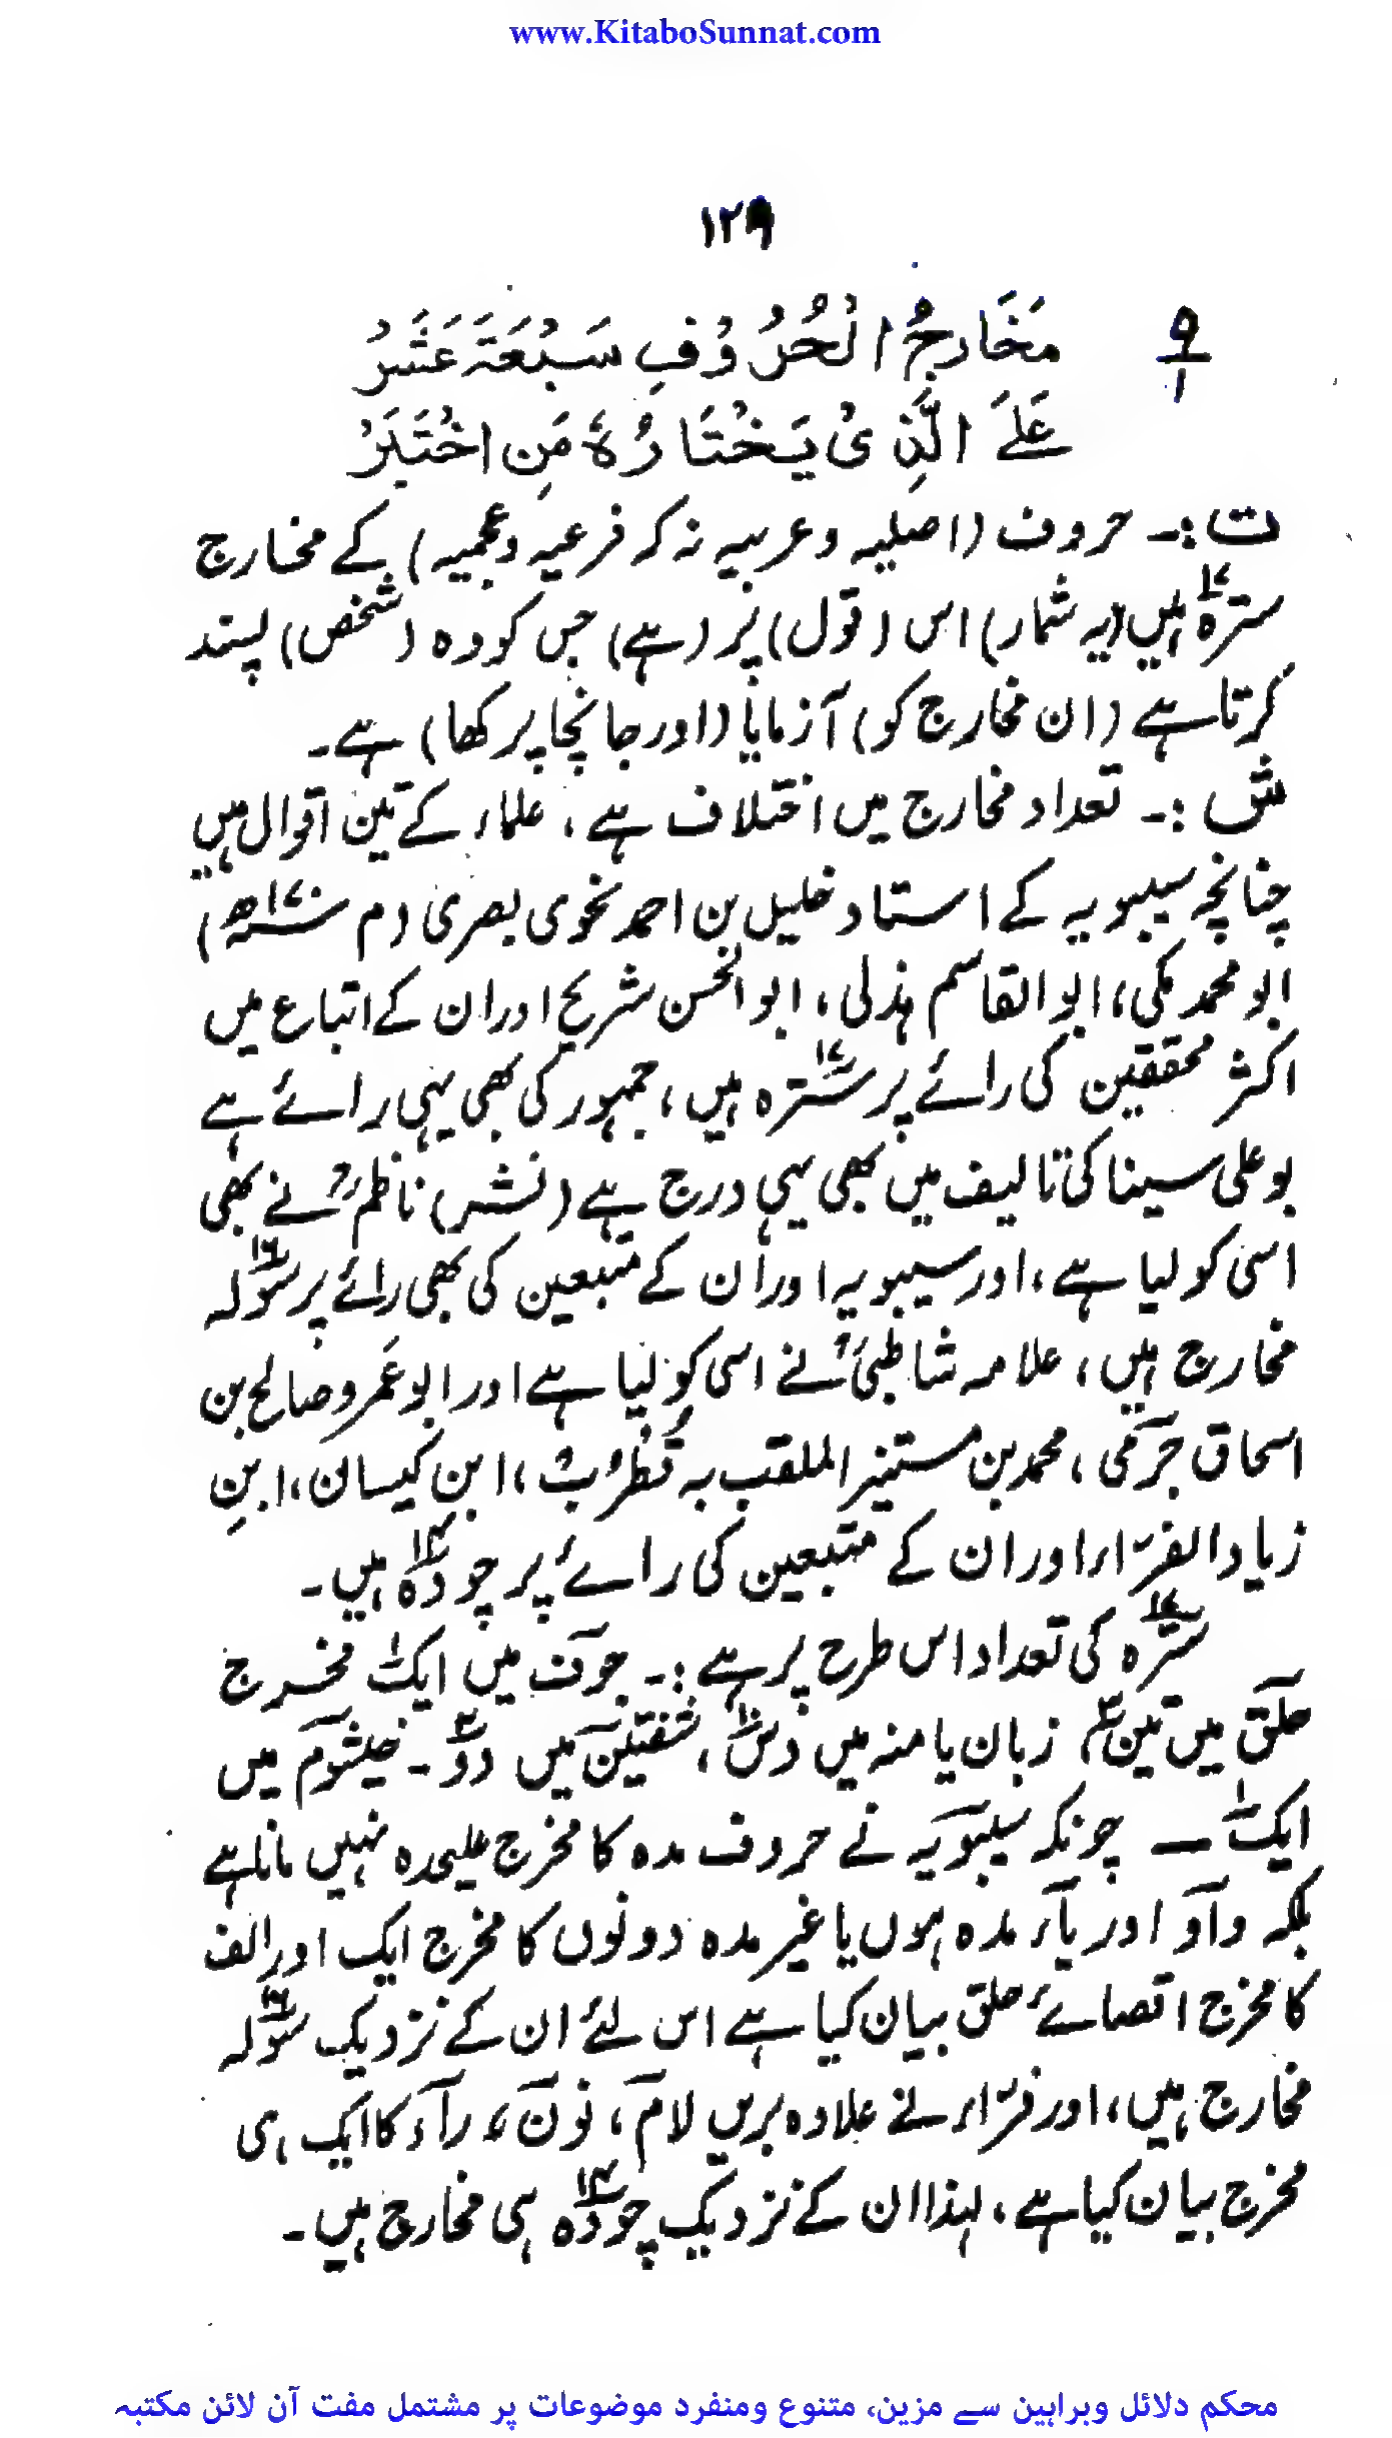 www.KitaboSunnat.com
۱۲۹
۹
۱
مَخَارِجُ الْحُرُوْفِ سَبْعَةَ عَشَرْ
عَلَے الَّذِیْ یَخْتَارُہٗ مَنِ اخْتَبَرْ
ت:۔ حروف (اصلیہ و عربیہ نہ کہ فرعیہ و عجمیہ) کے مخارج
سترہ۱۷ ہیں (یہ شمار) اس (قول) پر (ہے) جس کو وہ (شخص) پسند
کرتا ہے (ان مخارج کو) آزمایا (اور جانچا پرکھا) ہے۔
ش:۔ تعداد مخارج میں اختلاف ہے، علماء کے تین اقوال ہیں
چنانچہ سیبویہ کے استاد خلیل بن احمد نحوی بصری (م ۱۷۰ھ)
ابو محمد مکی، ابو القاسم ہذلی، ابو الحسن شریح اور ان کے اتباع میں
اکثر محققین کی رائے پر سترہ۱۷ ہیں، جمہور کی بھی یہی رائے ہے
بو علی سینا کی تالیف میں بھی یہی درج ہے (نشر) ناظمؒ نے بھی
اسی کو لیا ہے، اور سیبویہ اور ان کے متبعین کی بھی رائے پر سولہ۱۶
مخارج ہیں، علامہ شاطبیؒ نے اسی کو لیا ہے اور ابو عَمرو صالح بن
اسحاق جرمی، محمد بن مستنیر الملقب بہ قُطْرُبْ، ابن کیسان، ابنِ
زیاد الفرّاء اور ان کے متبعین کی رائے پر چودہ۱۴ ہیں۔
سترہ۱۷ کی تعداد اس طرح پر ہے:۔ جوف میں ایک۱ مخرج
حلق میں تین۳، زبان یا منہ میں دس۱۰، شفتین میں دو۲۔ خیشوم میں
ایک۱ — چونکہ سیبویہ نے حروف مدہ کا مخرج علیحدہ نہیں مانا ہے
بلکہ واو اور یاء مدہ ہوں یا غیر مدہ دونوں کا مخرج ایک اور الف
کا مخرج اقصائے حلق بیان کیا ہے اس لئے ان کے نزدیک سولہ۱۶
مخارج ہیں، اور فرّاء نے علاوہ بریں لام، نون، راء کا ایک ہی
مخرج بیان کیا ہے، لہذا ان کے نزدیک چودہ۱۴ ہی مخارج ہیں۔
محکم دلائل وبراہین سے مزین، متنوع ومنفرد موضوعات پر مشتمل مفت آن لائن مکتبہ